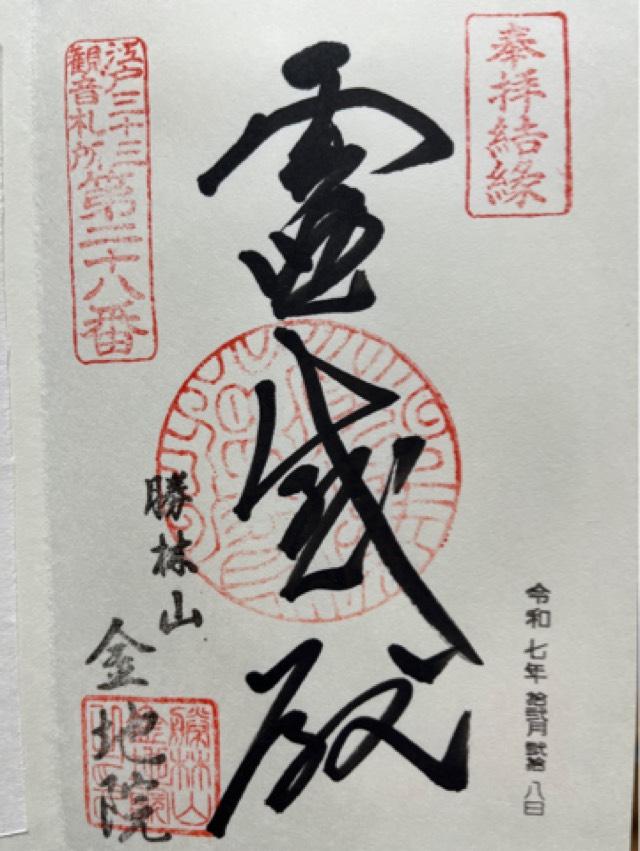 奉拝結縁
江戸三十三
観音札所
第二十八番
霊感殿
勝林山
金地院
令和七年 拾貳月 貳拾八日